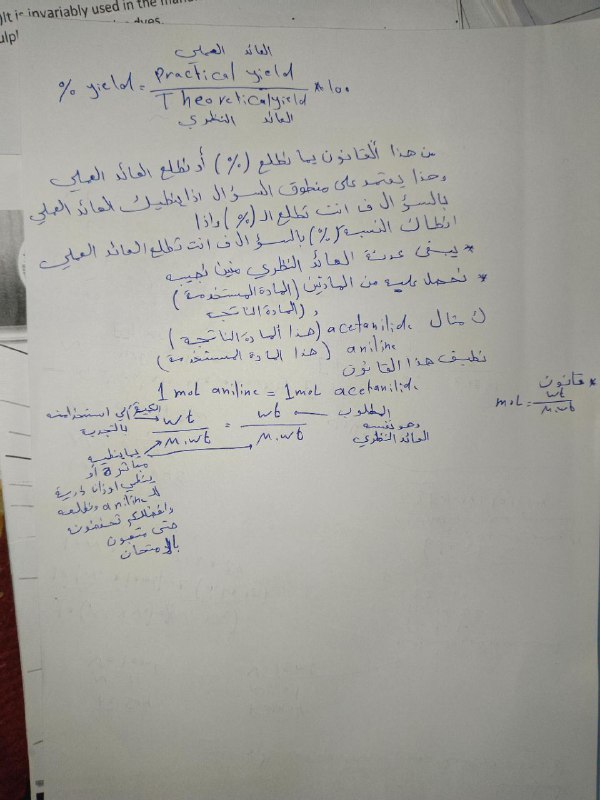 )It is invariably used in the
ulp
dyes.
العائد العملي
% yield = Practical yield / Theoretical yield * 100
العائد النظري
من هذا القانون يما نطلع (%) أو نطلع العائد العملي
وهذا يعتمد على منطوق السؤال اذا ينطيك العائد العملي
بالسؤال ف انت تطلع الـ (%) واذا
انطاك النسبة (%) بالسؤال ف انت تطلع العائد العملي
* يبقى عدنة العائد النظري منين نجيبه
* نحصل عليه من المادتين (المادة المستخدمة)
و (المادة الناتجه
ك مثال acetanilide (هذا المادة الناتجة)
aniline (هذا المادة المستخدمة)
نطبق هذا القانون
1 mol aniline = 1 mol acetanilide
* قانون
mol = wt / M.wt
الكمية الي استخدامته بالتجربة
wt / M.wt = wt / M.wt
المطلوب
وهو نفسه
العائد النظري
يما ينطيه
مباشرة أو
ينطي اوزان ذرية
لـ aniline ونطلعه
وافضلكم تحفظونه
حتى متعبون
بالامتحان